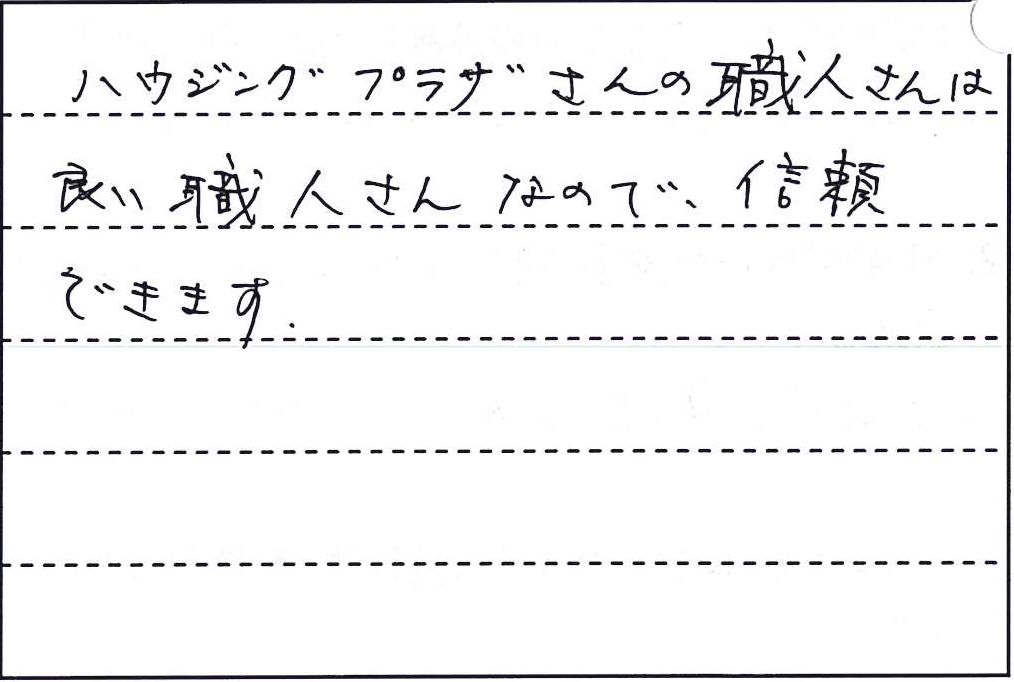 ハウジングプラザさんの職人さんは
良い職人さんなので、信頼
できます.